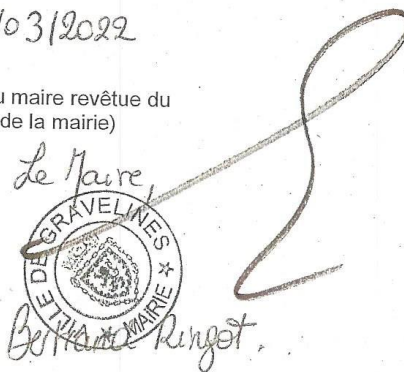 /03/2022
u maire revêtue du
de la mairie)
Le Maire,
VILLE DE GRAVELINES
★ MAIRIE ★
Bertrand Ringot.